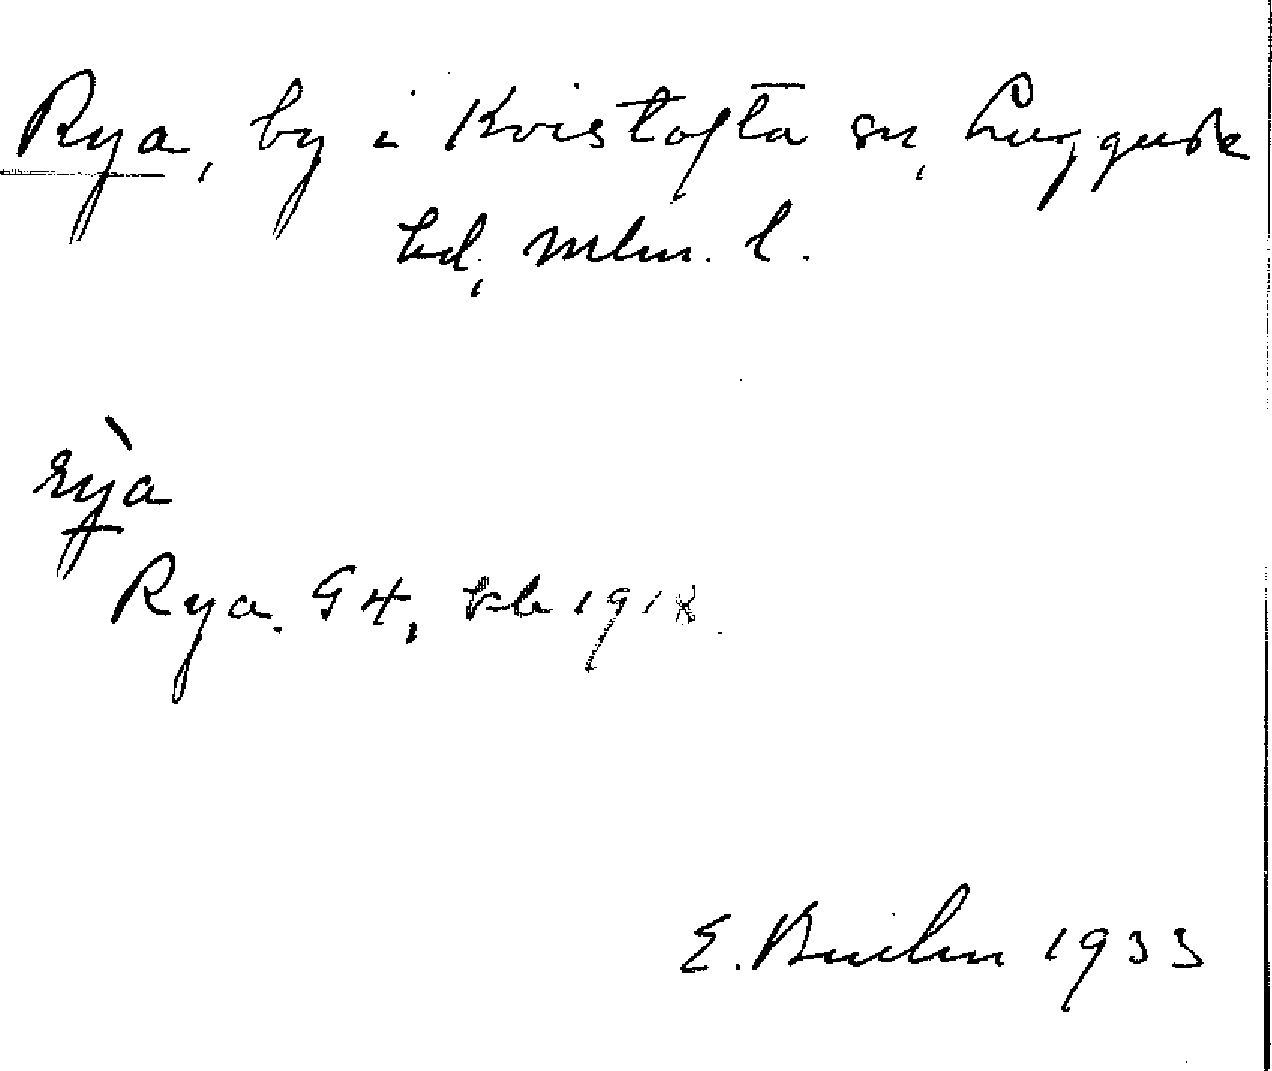 Rya, by i Kvistofta sn, Luggude
hd, Mlm. l.
rỳa
Rya. G4, kb 1918.
E. 1933